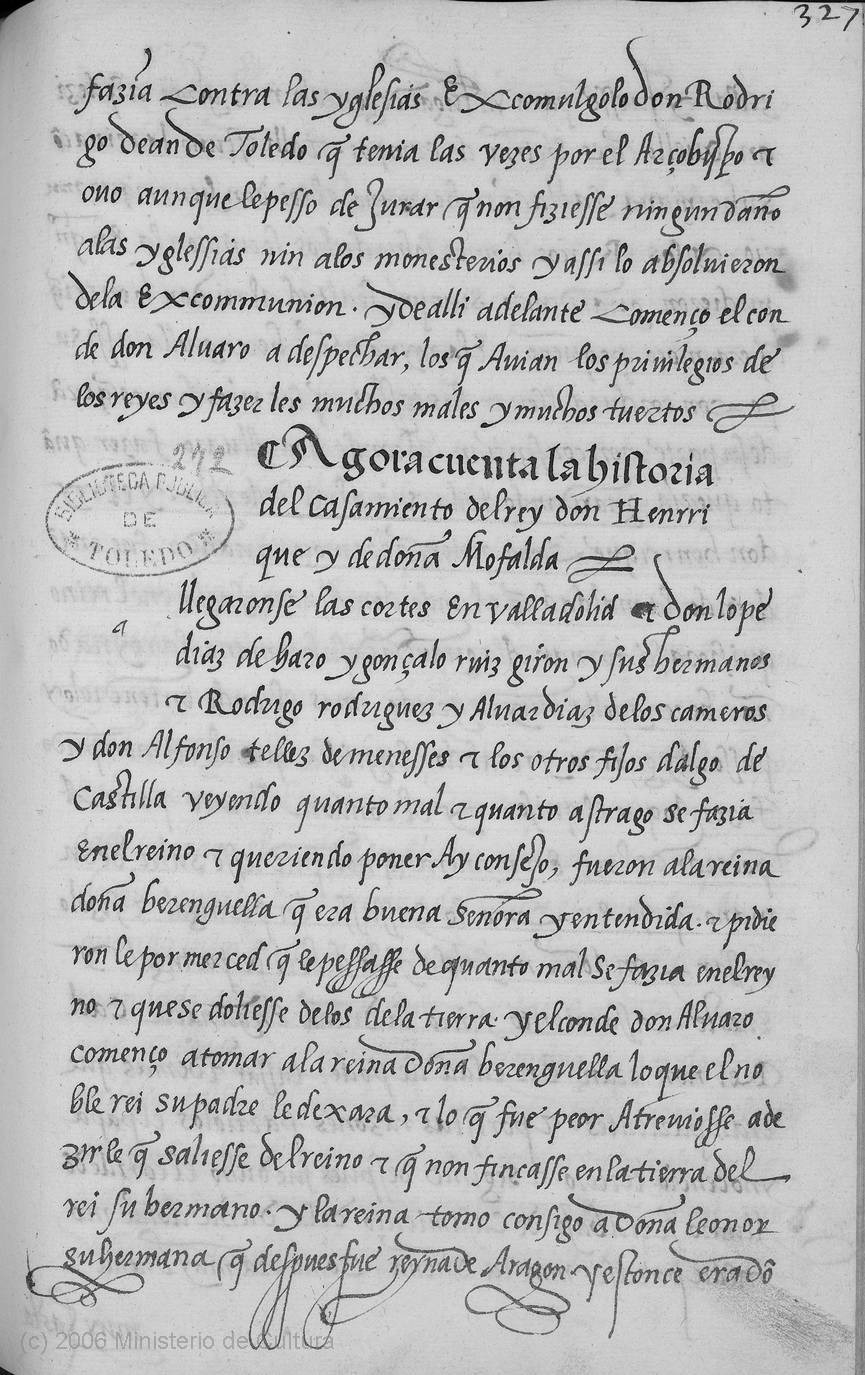 327
fazia contra las yglesias Excomulgolo don Rodri
go dean de Toledo q̃ tenia las vezes por el Arçobisp̃o τ
ovo aunque le pesso de Jurar q̃ non fiziesse ningun daño
alas yglessias nin alos monesterios y assi lo absolvieron
dela Excommunion. y de alli adelante començo el con
de don Alvaro a despechar, los q̃ Avian los privilegios de
los reyes y fazer les muchos males y muchos tuertos
272
BIBLIOTECA PUBLICA
DE
TOLEDO
¶ Agora cuenta la historia
del casamiento del rey don Henrri
que y de doña Mofalda
a
llegaronse las cortes En valladolid τ don lope
diaz de haro y gonçalo ruiz giron y sus hermanos
τ Rodrigo rodriguez y Alvar diaz delos cameros
y don Alfonso tellez de menesses τ los otros fijos dalgo de
Castilla veyendo quanto mal τ quanto astrago se fazia
Enel reino τ queriendo poner Ay consejo, fueron ala reina
doña berenguella q̃ era buena señora y entendida. τ pidie
ron le por merced q̃ le pessasse de quanto mal se fazia enel rey
no τ que se doliesse delos dela tierra. y el conde don Alvaro
començo a tomar ala reina doña berenguella lo que el no
ble rei su padre le dexara, τ lo q̃ fue peor Atreviosse a de
zirle q̃ saliesse del reino τ q̃ non fincasse en la tierra del
rei su hermano. y la reina tomo consigo a doña leonor
su hermana q̃ despues fue reyna de Aragon. y estonce era dõ
(c) 2006 Ministerio de Cultura